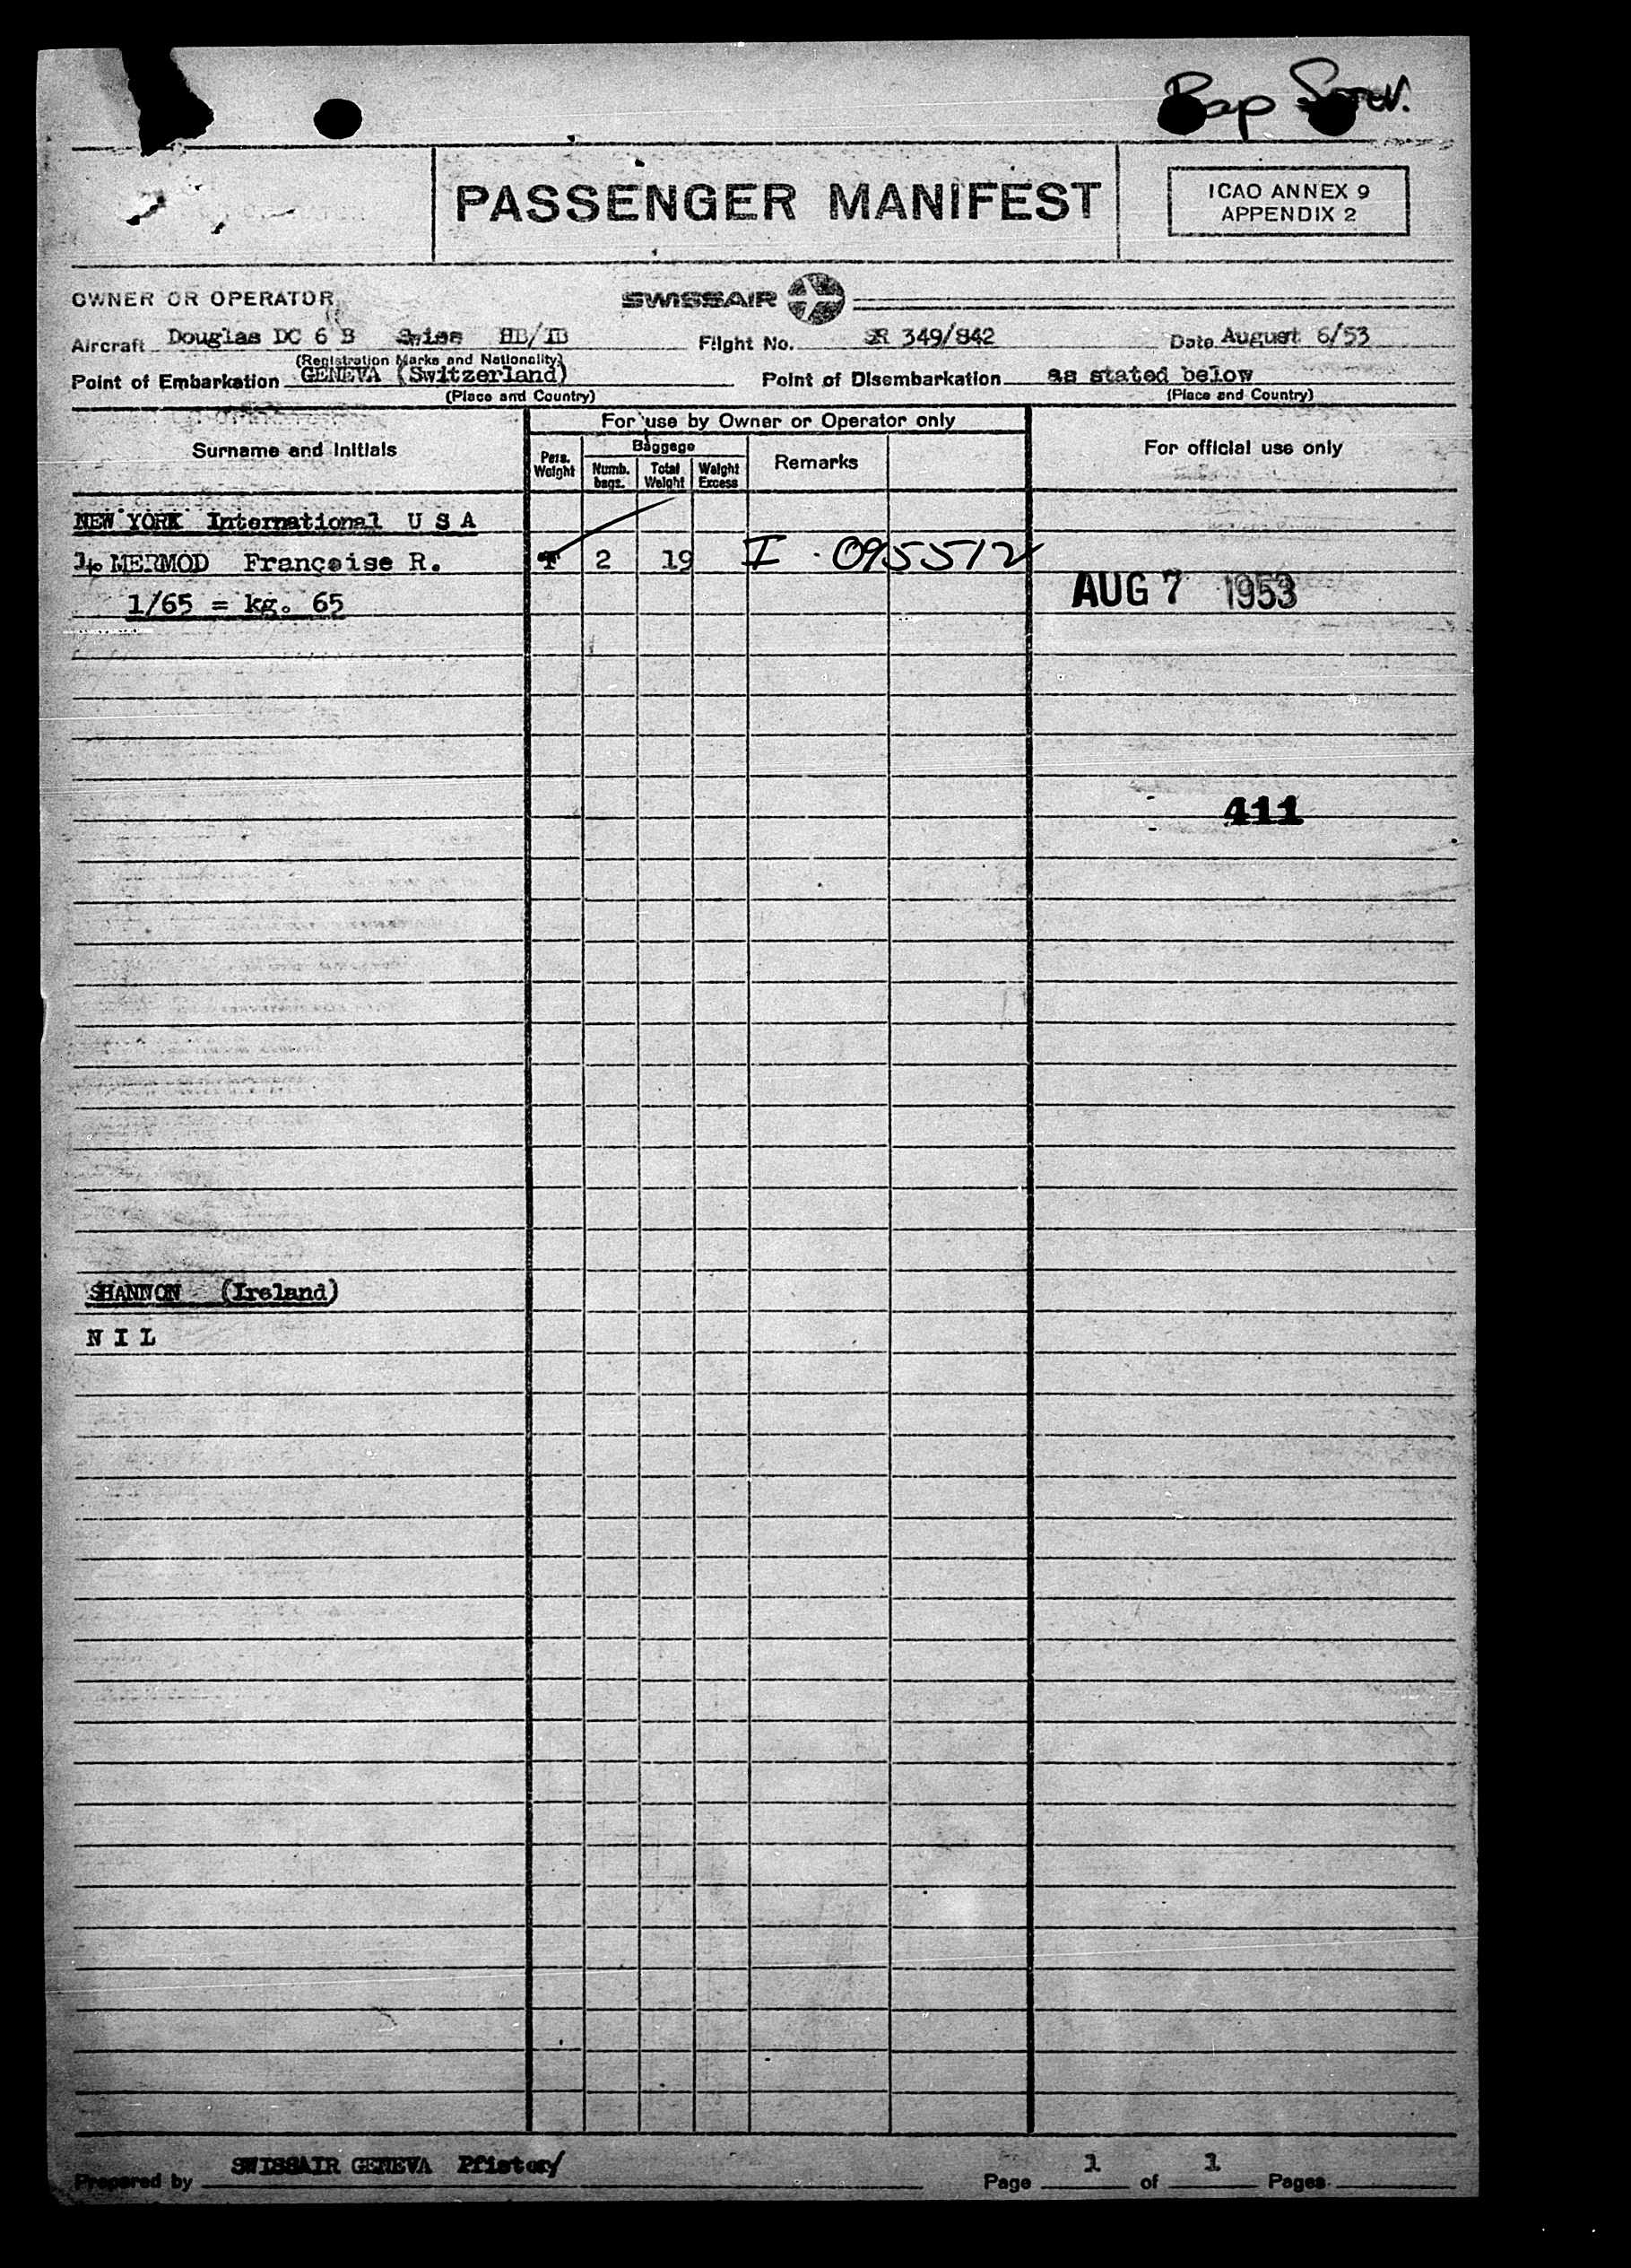 PASSENGER MANIFEST
ICAO ANNEX 9
APPENDIX 2
OWNER OR OPERATOR SWISSAIR
Aircraft Douglas DC 6 B Swiss HB/IB Flight No. SR 349/842 Date August 6/53
(Registration Marks and Nationality)
Point of Embarkation GENEVA (Switzerland) Point of Disembarkation as stated below
(Place and Country) (Place and Country)
For use by Owner or Operator only
Surname and Initials Pers. Weight Baggage Numb. bags. Total Weight Weight Excess Remarks For official use only
NEW YORK International U S A
MERMOD Françoise R. 2 19 I 095512
AUG 7 1953
1/65 = kg. 65
411
SHANNON (Ireland)
N I L
Prepared by SWISSAIR GENEVA Pfister/
Page 1 of 1 Pages